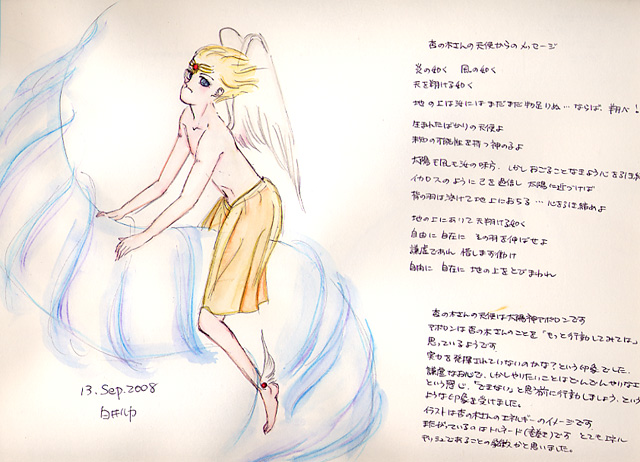 杏の木さんの天使からのメッセージ
炎の如く 風の如く
天を翔ける如く
地の上は汝にはまだまだ物足りぬ… ならば、翔べ!
生まれたばかりの天使よ
未知の可能性を持つ神の子よ
太陽も風も汝の味方、しかしおごることなきよう心を引き締め
イカロスのように己を過信し太陽に近づけば
背の羽は溶けて地上におちる… 心を引き締めよ
地の上にありて天翔ける如く
自由に自在に その羽を伸ばせよ
謙虚であれ 惜しまず働け
自由に 自在に 地の上をとびまわれ
杏の木さんの天使は太陽神アポロンです
アポロンは杏の木さんのことを「もっと行動してみては」
思っているようです
実力を発揮されていないのかな?という印象でした。
謙虚なお心で、しかしやりたいことはどんどんやりなさ
という感じ、「できない」と思う前に行動しましょう、という
ような印象を受けました。
イラストは杏の木さんのエネルギーのイメージです
またがっているのはトルネード(竜巻)です とてもエネル
ギッシュであることの象徴かと思いました。
13. Sep. 2008